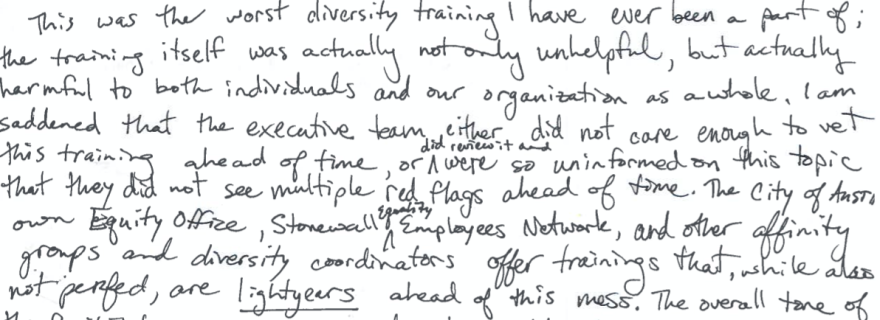 This was the worst diversity training I have ever been a part of;
the training itself was actually not only unhelpful, but actually
harmful to both individuals and our organization as a whole. I am
saddened that the executive team either did not care enough to vet
did review it and
this training ahead of time, or ^ were so uninformed on this topic
that they did not see multiple red flags ahead of time. The City of
Equality
own Equity Office, Stonewall ^ Employees Network, and other affinity
groups and diversity coordinators offer trainings that, while also
not perfect, are lightyears ahead of this mess. The overall tone of